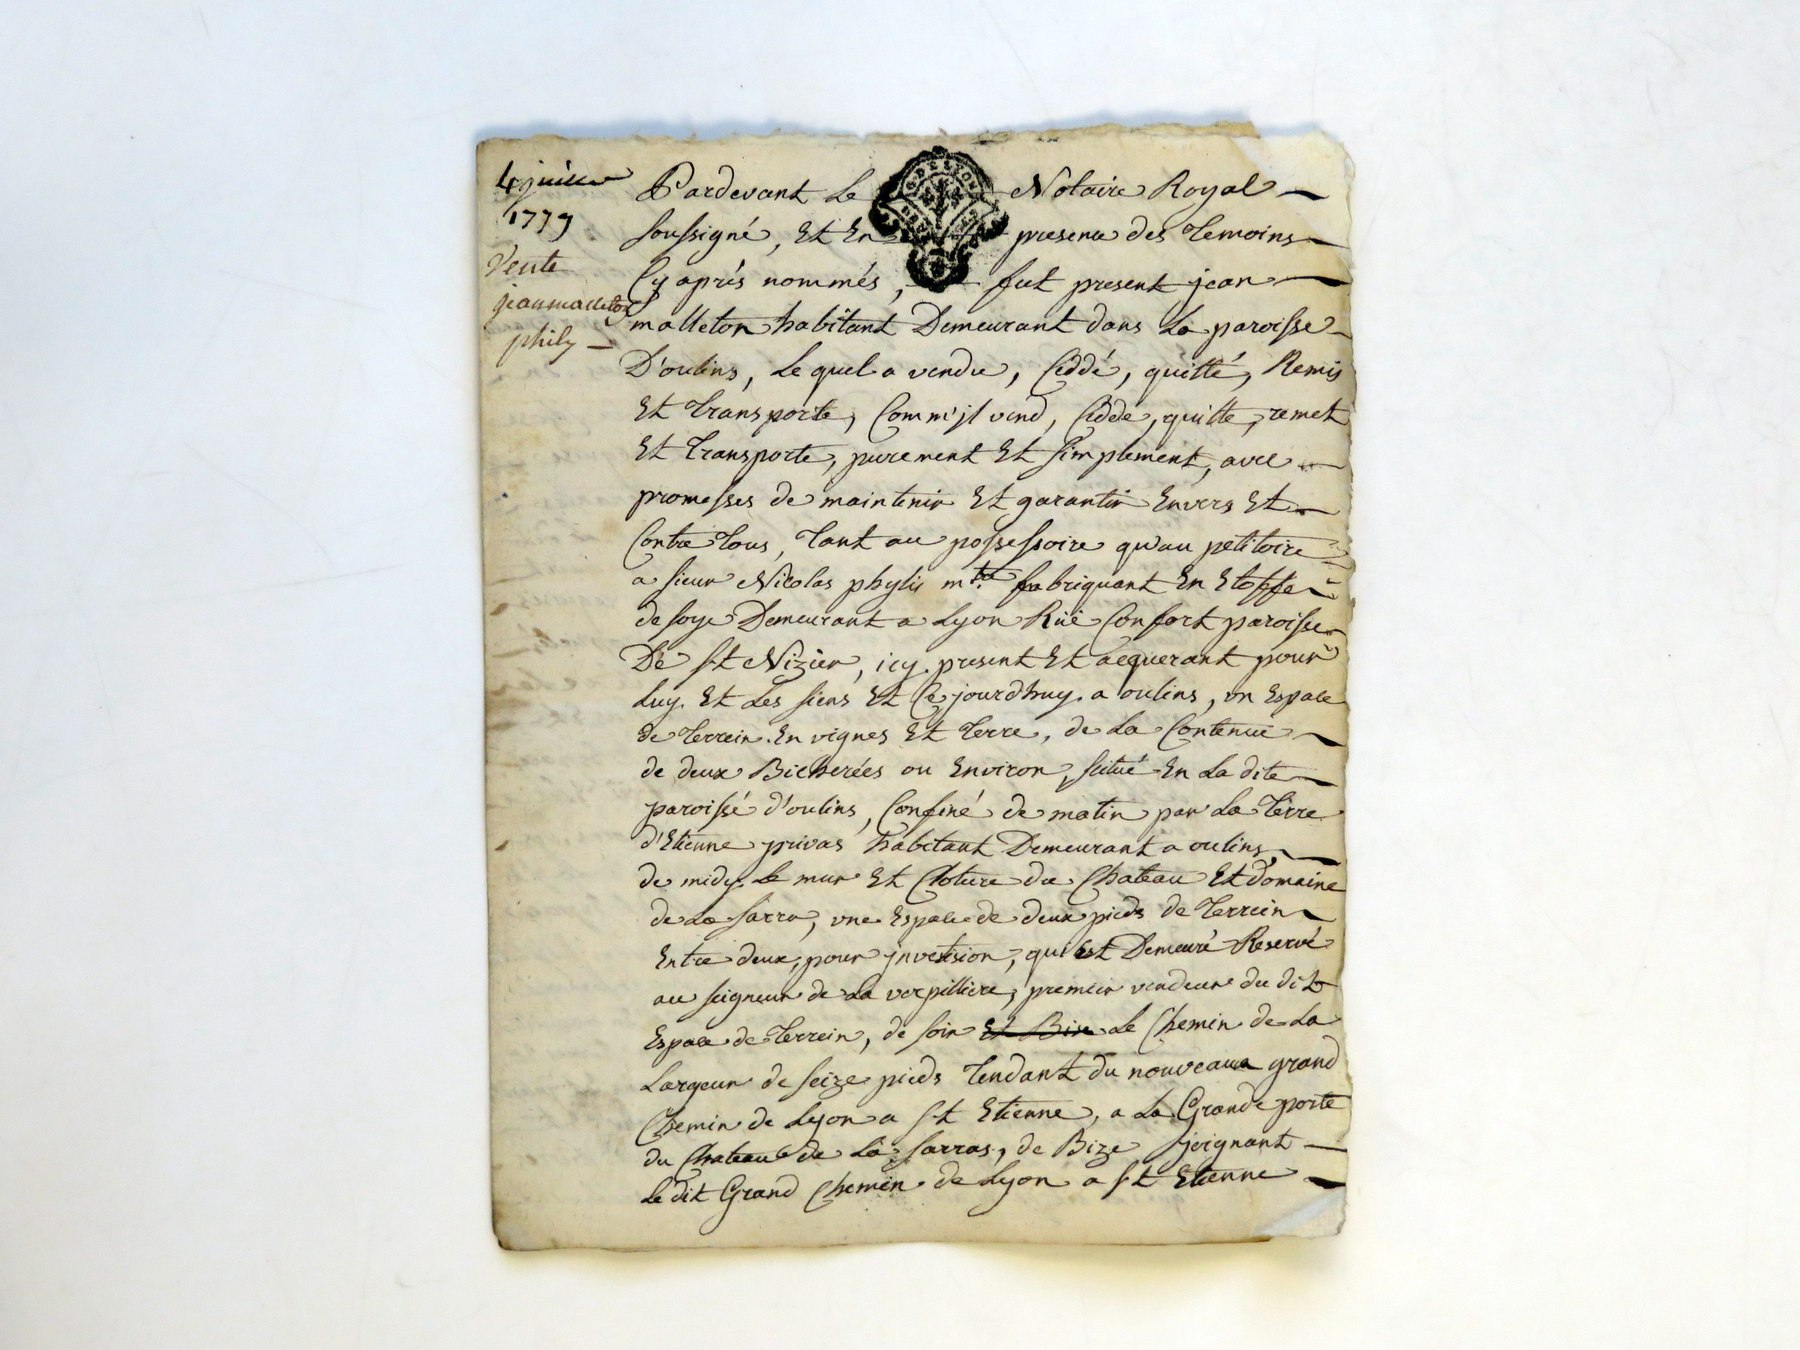 4 juillet
1779
Vente
jean malleton
phily —
Pardevant Le Notaire Royal —
soussigné, Et En presence des Temoins —
Cy aprés nommés, fut present jean —
malleton habitant Demeurant dans La paroisse —
D'oulins, Le quel a vendu, Ceddé, quitté, Remis
Et Transporte, Comm'jl vend, Cédde, quitte, remet
Et Transporte, purement Et simplement, avec —
promesses de maintenir Et garantir Envers Et —
Contre Tous, Tant au possessoire qu'au petitoire
a sieur Nicolas phylis md. fabriquant En Etoffe —
de soye Demeurant a Lyon Rüe Confort paroisse
De st Nizier, icy present Et acquerant pour
Luy Et Les siens Et Ce jourdhuy a oulins, un Espace
de Terrein En vignes Et Terre, de La Contenue —
de deux Bicherées ou Environ, situé En La dite —
paroisse d'oulins, Confiné de matin par La Terre
d'Etienne privas habitant Demeurant a oulins, —
de midy Le mur Et Cloture du Chateau Et domaine
de La sarra, une Espace de deux pieds de Terrein —
Entre deux, pour jnvetision, qui Est Demeuré Reservé
au seigneur de La verpilliere, premier vendeur du dit
Espace de Terrein, de soir Et Bise Le Chemin de La
Largeur de seize pieds Tendant du nouveaux grand
Chemin de Lyon a st Etienne, a La Grande porte
du Chateau de La sarras, de Bize joignant —
Le dit Grand Chemin de Lyon a st Etienne —